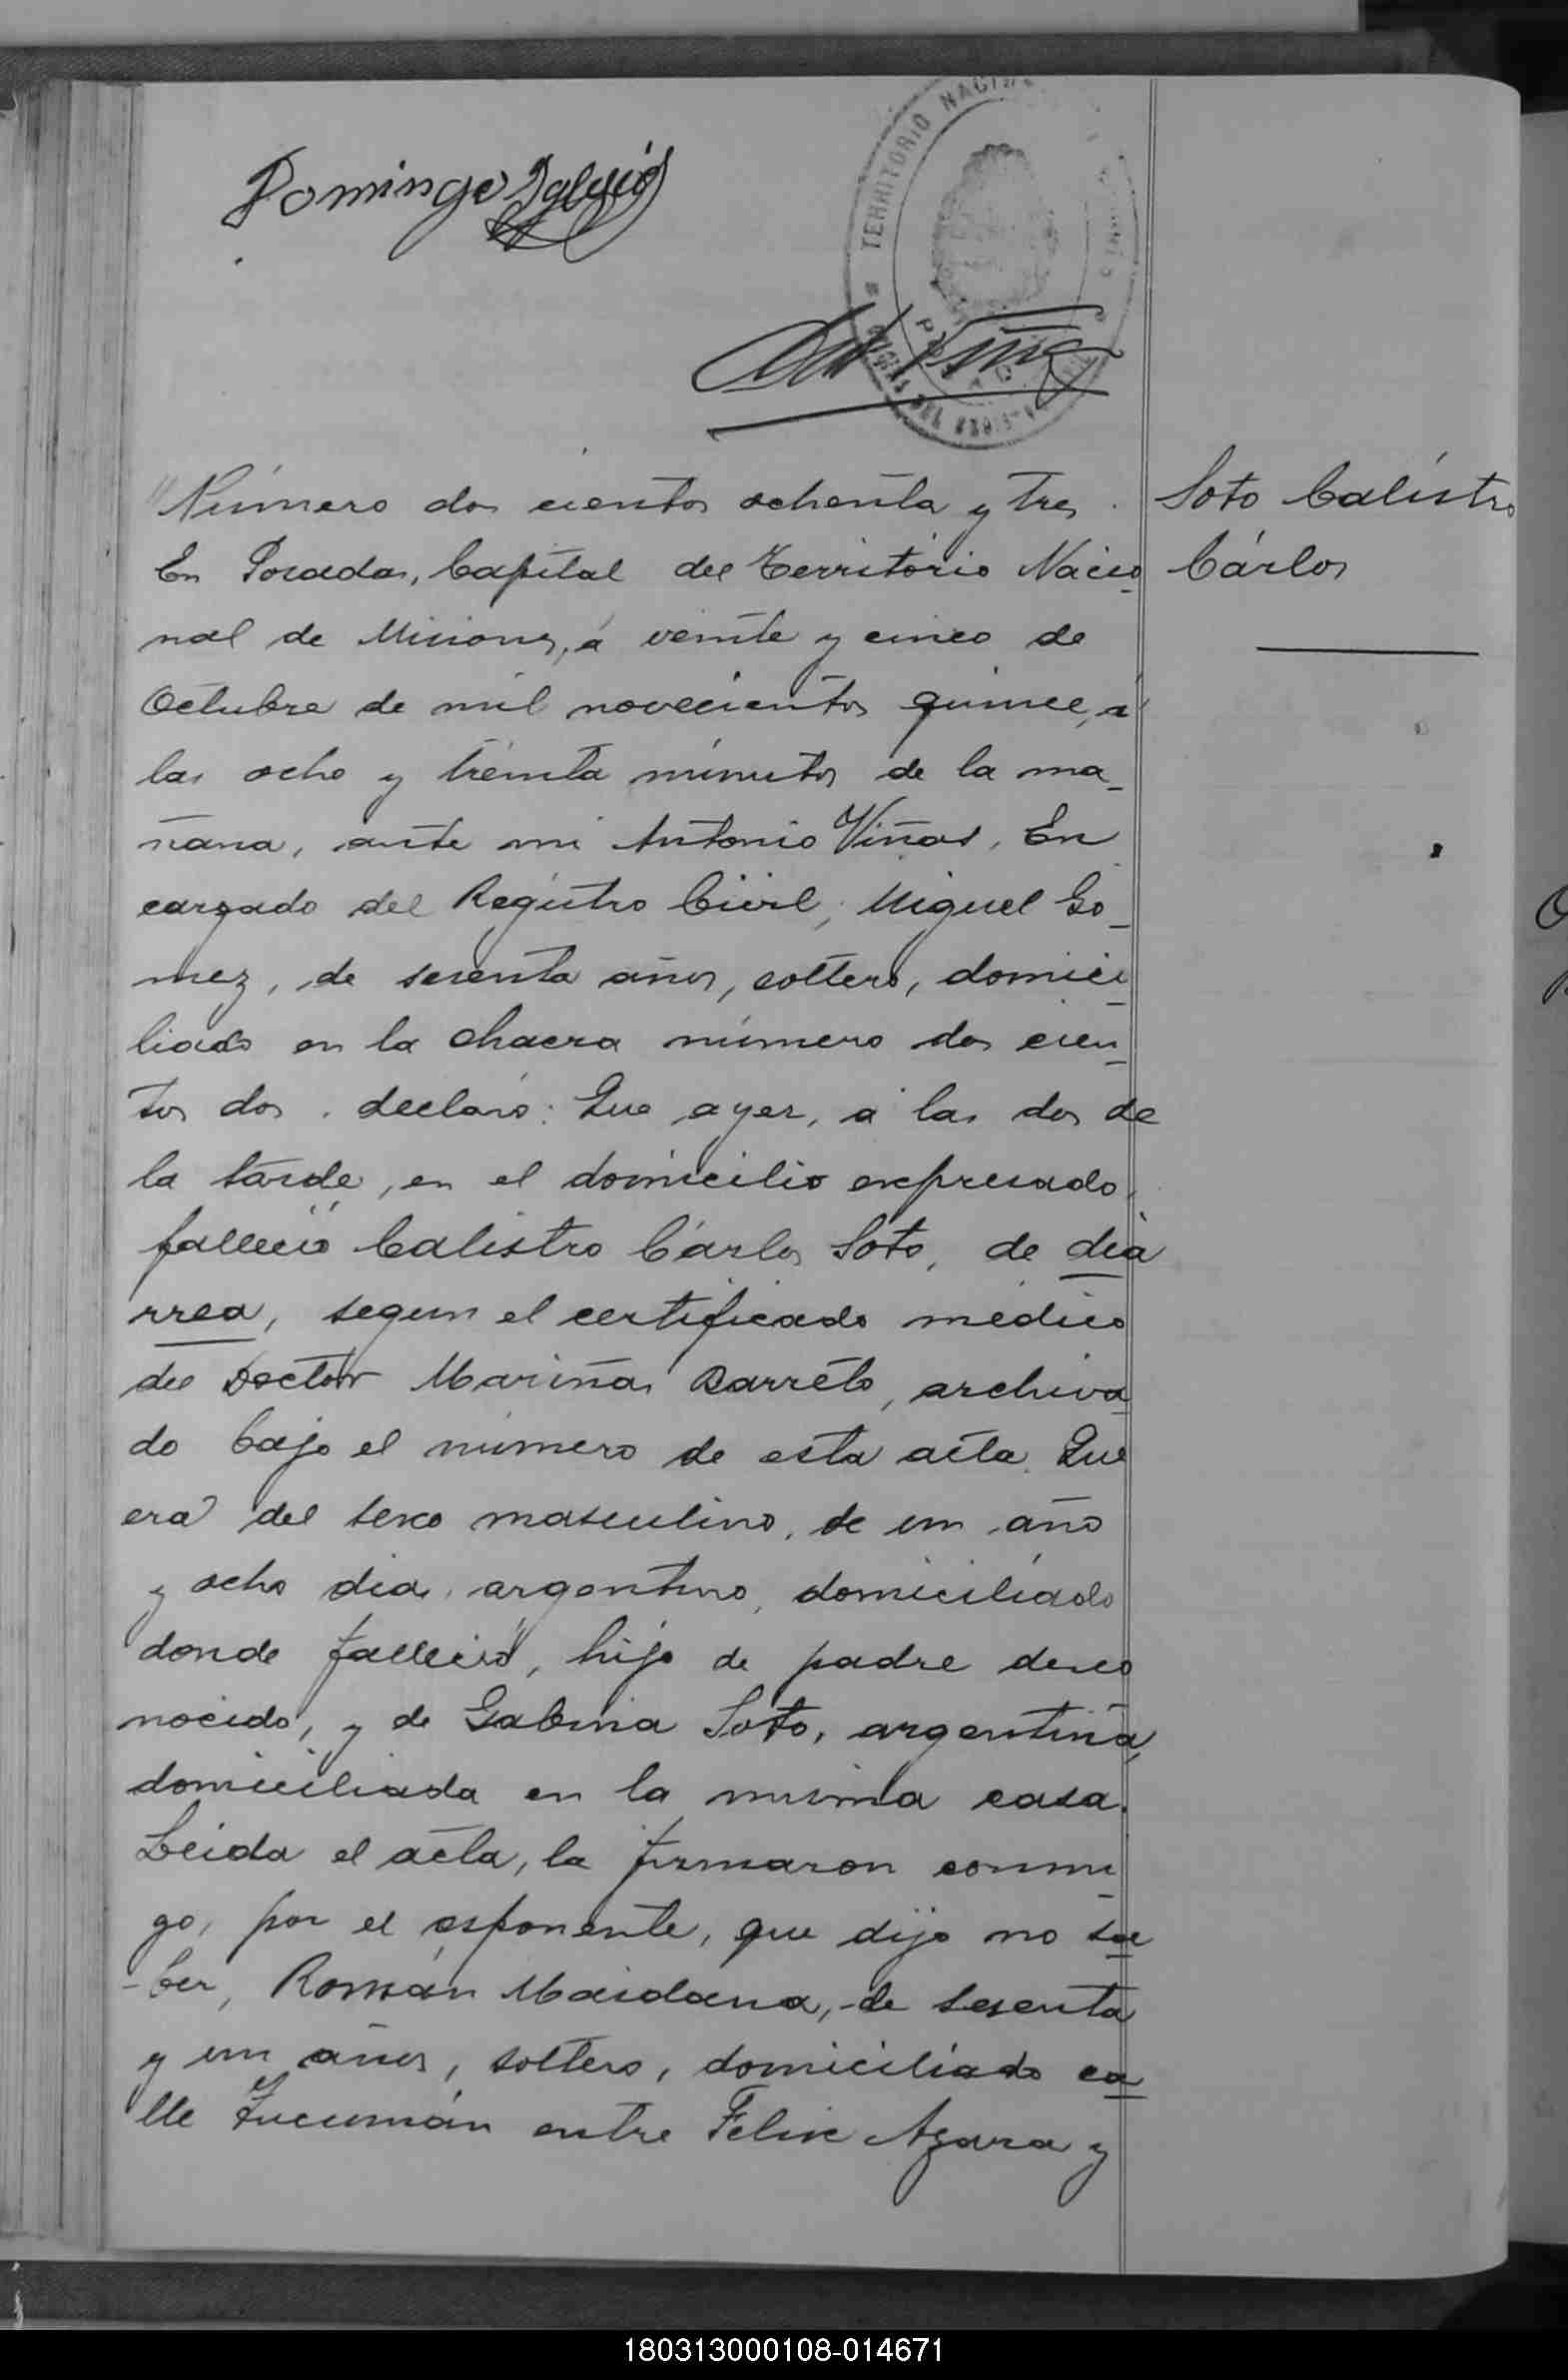 Domingo Iglesias
TERRITORIO NACI
Número dos cientos ochenta y tres
Soto Calistro
Cárlos
En Posadas, Capital del Territorio Nacio
nal de Misiones, á veinte y cinco de
Octubre de mil novecientos quince, á
las ocho y treinta minutos de la ma-
ñana, ante mi Antonio Viñas, En
cargado del Registro Civil, Miguel Go-
mez, de sesenta años, soltero, domici-
liado en la chacra número dos cien-
tos dos, declaró: Que ayer, á las dos de
la tarde, en el domicilio expresado,
falleció Calistro Cárlos Soto, de dia
rrea, segun el certificado médico
del Doctor Mariñas Barreto, archiva
do bajo el número de esta acta. Que
era del sexo masculino, de un año
y ocho dias, argentino, domiciliado
donde falleció, hijo de padre desco
nocido, y de Gabina Soto, argentina,
domiciliada en la misma casa.
Leida el acta, la firmaron conmi-
go, por el esponente, que dijo no sa
-ber, Román Maidana, de sesenta
y un años, soltero, domiciliado ca
lle Tucumán entre Felix Azara y
180313000108-014671